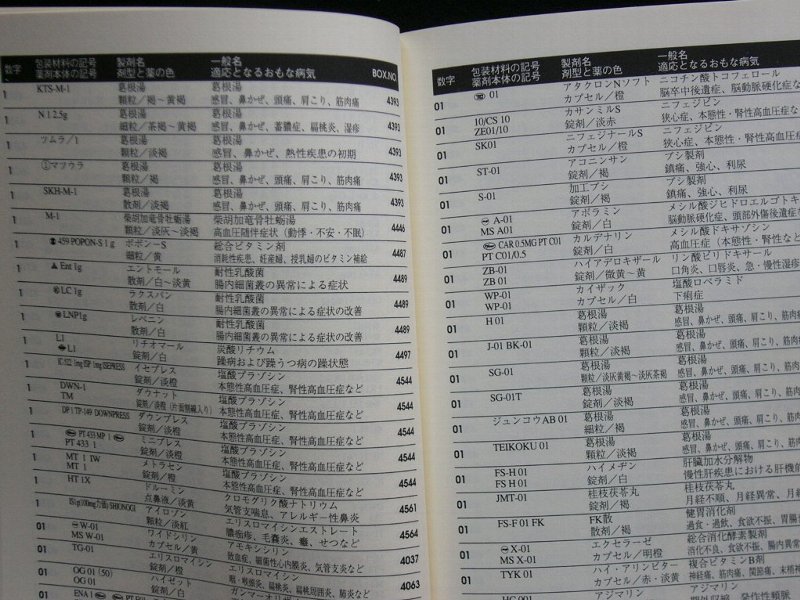 数字 包装材料の記号 製剤名 一般名 BOX.NO.
薬剤本体の記号 剤型と薬の色 適応となるおもな病気
1 KTS-M-1 葛根湯 葛根湯
顆粒/褐〜黄褐 感冒、鼻かぜ、頭痛、肩こり、筋肉痛 4393
1 N 1 2.5g 葛根湯 葛根湯
細粒/茶褐〜黄褐 感冒、鼻かぜ、蓄膿症、扁桃炎、湿疹 4393
1 ツムラ/1 葛根湯 葛根湯
顆粒/淡褐 感冒、鼻かぜ、熱性疾患の初期 4393
1 ①マツウラ 葛根湯 葛根湯
顆粒/褐 感冒、鼻かぜ、頭痛、肩こり、筋肉痛 4393
1 SKH-M-1 葛根湯 葛根湯
散剤/淡褐 感冒、鼻かぜ、頭痛、肩こり、筋肉痛 4393
1 M-1 柴胡加竜骨牡蛎湯 柴胡加竜骨牡蛎湯
顆粒/淡灰〜淡褐 高血圧随伴症状（動悸・不安・不眠） 4446
1 459 POPON-S 1g ポポンーS 総合ビタミン剤
細粒/黄 消耗性疾患、妊産婦、授乳婦のビタミン補給 4467
1 Ent 1g エントモール 耐性乳酸菌
散剤/白〜淡黄 腸内細菌叢の異常による症状 4489
1 LC 1g ラクスパン 耐性乳酸菌
散剤/白 腸内細菌叢の異常による症状の改善 4489
1 LNP1g レベニン 耐性乳酸菌
散剤/白 腸内細菌叢の異常による症状の改善 4489
1 L1 リチオマール 炭酸リチウム
L1 錠剤/白 躁病および躁うつ病の躁状態 4497
1 イセプレス 塩酸プラゾシン
錠剤/淡橙 本態性高血圧症、腎性高血圧症など 4544
1 DWN-1 ダウナット 塩酸プラゾシン
TM 錠剤/淡橙（片面割線入り） 本態性高血圧症、腎性高血圧症など 4544
1 DP 1 TP-149 DOWNPRESS ダウンプレス 塩酸プラゾシン
錠剤/淡橙 本態性高血圧症、腎性高血圧症など 4544
1 PT 433 MP 1 ミニプレス 塩酸プラゾシン
PT 433 1 錠剤/淡橙 本態性高血圧症、腎性高血圧症など 4544
1 MT 1 IW メトラセン 塩酸プラゾシン
MT 1 錠剤/淡橙 本態性高血圧症、腎性高血圧症など 4544
1 HT 1X ドルーミン クロモグリク酸ナトリウム
点鼻液/淡黄 気管支喘息、アレルギー性鼻炎 4561
1 アイロゾン エリスロマイシンエストレート
顆粒/淡紅 膿痂疹、毛嚢炎、癰、せつなど 4564
01 W-01 ワイドシリン アモキシシリン
MS W-01 カプセル/黄 敗血症、細菌性心内膜炎、気管支炎 4037
01 TG-01 エリスロマイシン エリスロマイシン
錠剤/橙 咽・喉頭炎、扁桃炎、扁桃周囲炎、肺炎など 4063
01 OG 01 (50) ハイゼット
OG 01 錠剤/白
01 ENA 1
数字 包装材料の記号 製剤名 一般名
薬剤本体の記号 剤型と薬の色 適応となるおもな病気
01 01 アタクロンNソフト ニコチン酸トコフェロール
カプセル/橙 脳卒中後遺症、脳動脈硬化症な
01 10/CS 10 カサンミルS ニフェジピン
ZE01/10 錠剤/淡赤 狭心症、本態性・腎性高血圧症な
01 SK01 ニフェジナールS ニフェジピン
カプセル/橙 狭心症、本態性・腎性高血圧症な
01 ST-01 アコニンサン ブシ製剤
錠剤/褐 鎮痛、強心、利尿
01 S-01 加工ブシ ブシ製剤
錠剤/褐 鎮痛、強心、利尿
01 A-01 アポラミン メシル酸ジヒドロエルゴトキ
MS A01 錠剤/白 脳動脈硬化症、頭部外傷後遺症
01 CAR 0.5MG PT C01 カルデナリン メシル酸ドキサゾシン
PT C01/0.5 錠剤/白 高血圧症（本態性・腎性など
01 ZB-01 ハイアデロキザール リン酸ピリドキサール
ZB 01 錠剤/微黄〜黄 口角炎、口唇炎、急・慢性湿疹
01 WP-01 カイザック 塩酸ロペラミド
WP-01 カプセル/白 下痢症
01 H 01 葛根湯 葛根湯
顆粒/淡褐 感冒、鼻かぜ、頭痛、肩こり、筋肉
01 J-01 BK-01 葛根湯 葛根湯
顆粒/淡褐 感冒、鼻かぜ、頭痛、肩こり、筋肉
01 SG-01 葛根湯 葛根湯
顆粒/淡灰黄褐〜淡灰茶褐 感冒、鼻かぜ、頭痛、肩こり、筋肉
01 SG-01T 葛根湯 葛根湯
錠剤/淡褐 感冒、鼻かぜ、頭痛、肩こり、筋肉
01 ジュンコウAB 01 葛根湯 葛根湯
細粒/褐 感冒、鼻かぜ、頭痛、肩こり、筋肉
01 TEIKOKU 01 葛根湯 葛根湯
顆粒/淡褐 感冒、鼻かぜ、頭痛、肩こり、筋肉
01 FS-H 01 ハイメヂン 肝臓加水分解物
FS H 01 錠剤/白 慢性肝疾患における肝機能
01 JMT-01 桂枝茯苓丸 桂枝茯苓丸
錠剤/淡褐 月経不順、月経異常、月経
01 FS-F 01 FK FK散 健胃消化剤
散剤/褐 過食・過飲、食欲不振、胃腸
01 X-01 エクセラーゼ 総合消化酵素製剤
MS X-01 カプセル/明橙 消化不良、食欲不振、腸内異常
01 TYK 01 ハイ・アリンビター 複合ビタミンB剤
カプセル/赤・淡黄 神経痛、筋肉痛、関節痛、末梢神
HC 001 アジマリン アジマリン